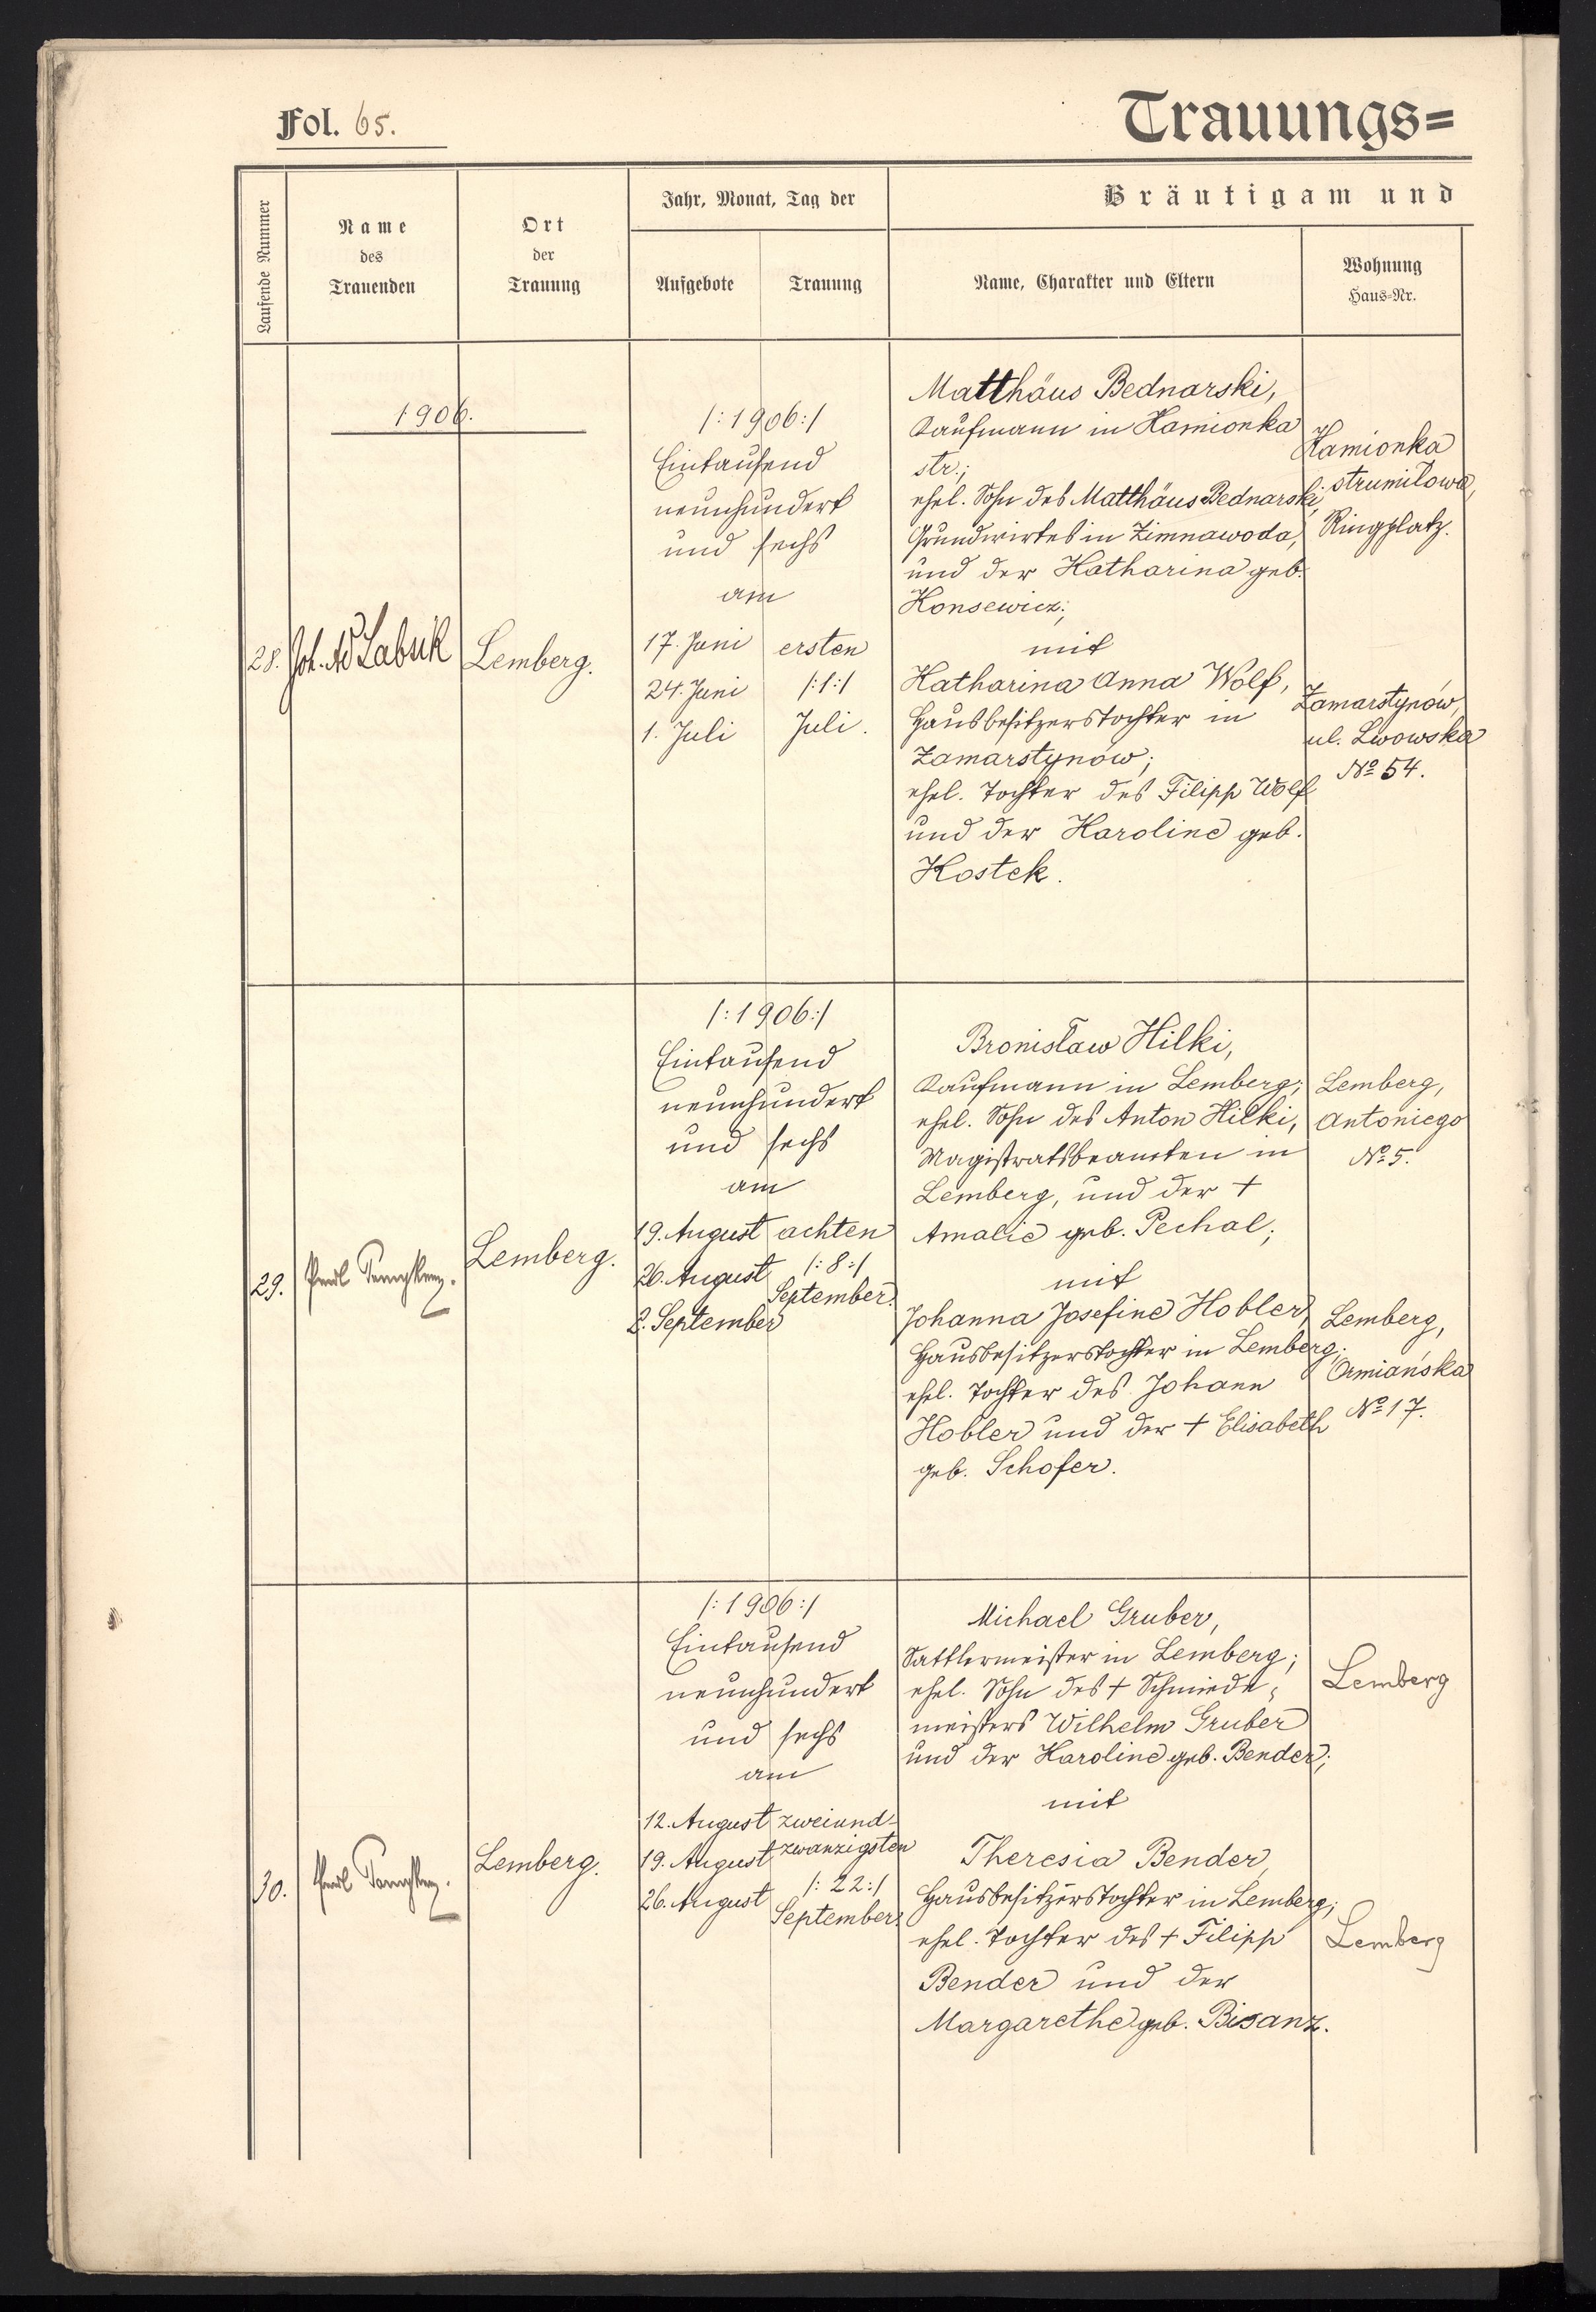 Fol. 65.
Trauungs=
Laufende Nummer
Name
des
Trauenden
Ort
der
Trauung
Jahr, Monat, Tag der
Aufgebote
Trauung
Bräutigam und
Name, Charakter und Eltern
Wohnung
Haus-Nr.
1906.
28.
Lemberg.
/:1906:/
Eintausend
neunhundert
und sechs
am
17. Juni
24. Juni
1. Juli
ersten
/:1:/
Juli.
Matthäus Bednarski,
Kaufmann in Kamionka
str.;
ehel. Sohn des Matthäus Bednarski,
Grundwirtes in Zimnawoda,
und der Katharina geb.
Konsewicz;
mit
Katharina Anna Wolf,
Hausbesitzerstochter in
Zamarstynów;
ehel. Tochter des Filipp Wolf
und der Karoline geb.
Kostek.
Kamionka
strumiłowa,
Ringplatz.
Zamarstynów,
ul. Lwowska
№ 54.
29.
Lemberg.
/:1906:/
Eintausend
neunhundert
und sechs
am
19. August
26. August
2. September
achten
/:8:/
September.
Bronisław Hilki,
Kaufmann in Lemberg;
ehel. Sohn des Anton Hilki,
Magistratsbeamten in
Lemberg, und der †
Amalie geb. Pechal;
mit
Johanna Josefine Hobler,
Hausbesitzerstochter in Lemberg;
ehel. Tochter des Johann
Hobler und der † Elisabeth
geb. Schofer.
Lemberg,
Antoniego
№ 5.
Lemberg,
Ormiańska
№ 17.
30.
Lemberg.
/:1906:/
Eintausend
neunhundert
und sechs
am
12. August
19. August
26. August
zweiund-
zwanzigsten
/:22:/
September.
Michael Gruber,
Sattlermeister in Lemberg;
ehel. Sohn des † Schmiede-
meisters Wilhelm Gruber
und der Karoline geb. Bender;
mit
Theresia Bender,
Hausbesitzerstochter in Lemberg;
ehel. Tochter des † Filipp
Bender und der
Margarethe geb. Bisanz.
Lemberg
Lemberg